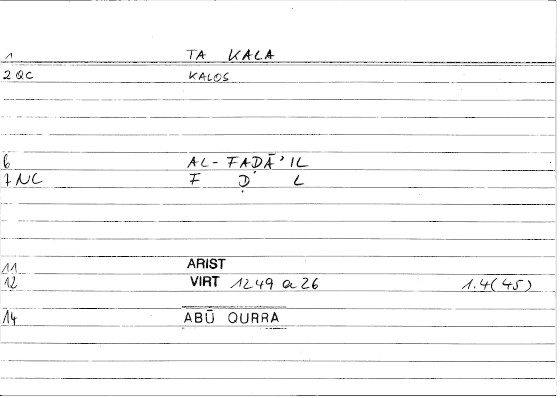 1 TA KALA
2 QC KALOS
6 AL-FAḌĀ'IL
7 NC F Ḍ L
11 ARIST
12 VIRT 1249 a 26 1.4(45)
14 ABŪ QURRA